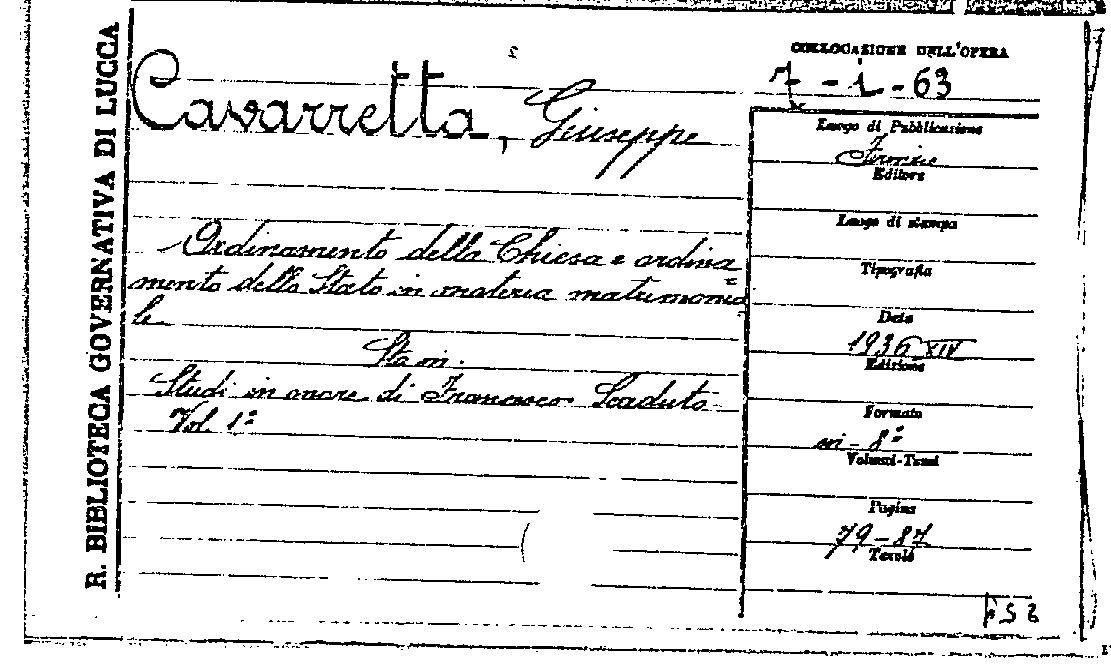 R. BIBLIOTECA GOVERNATIVA DI LUCCA
COLLOCAZIONE DELL'OPERA
7-i-63
Cavarretta, Giuseppe
Luogo di Pubblicazione
Firenze
Editore
Luogo di stampa
Ordinamento della Chiesa e ordina
mento dello Stato in materia matrimonia
le
Tipografia
Data
1936 XIV
Edizione
Sta in:
Studi in onore di Francesco Scaduto
Vol. 1º
Formato
in-8º
Volumi-Tomi
Pagine
79-87
Tavole